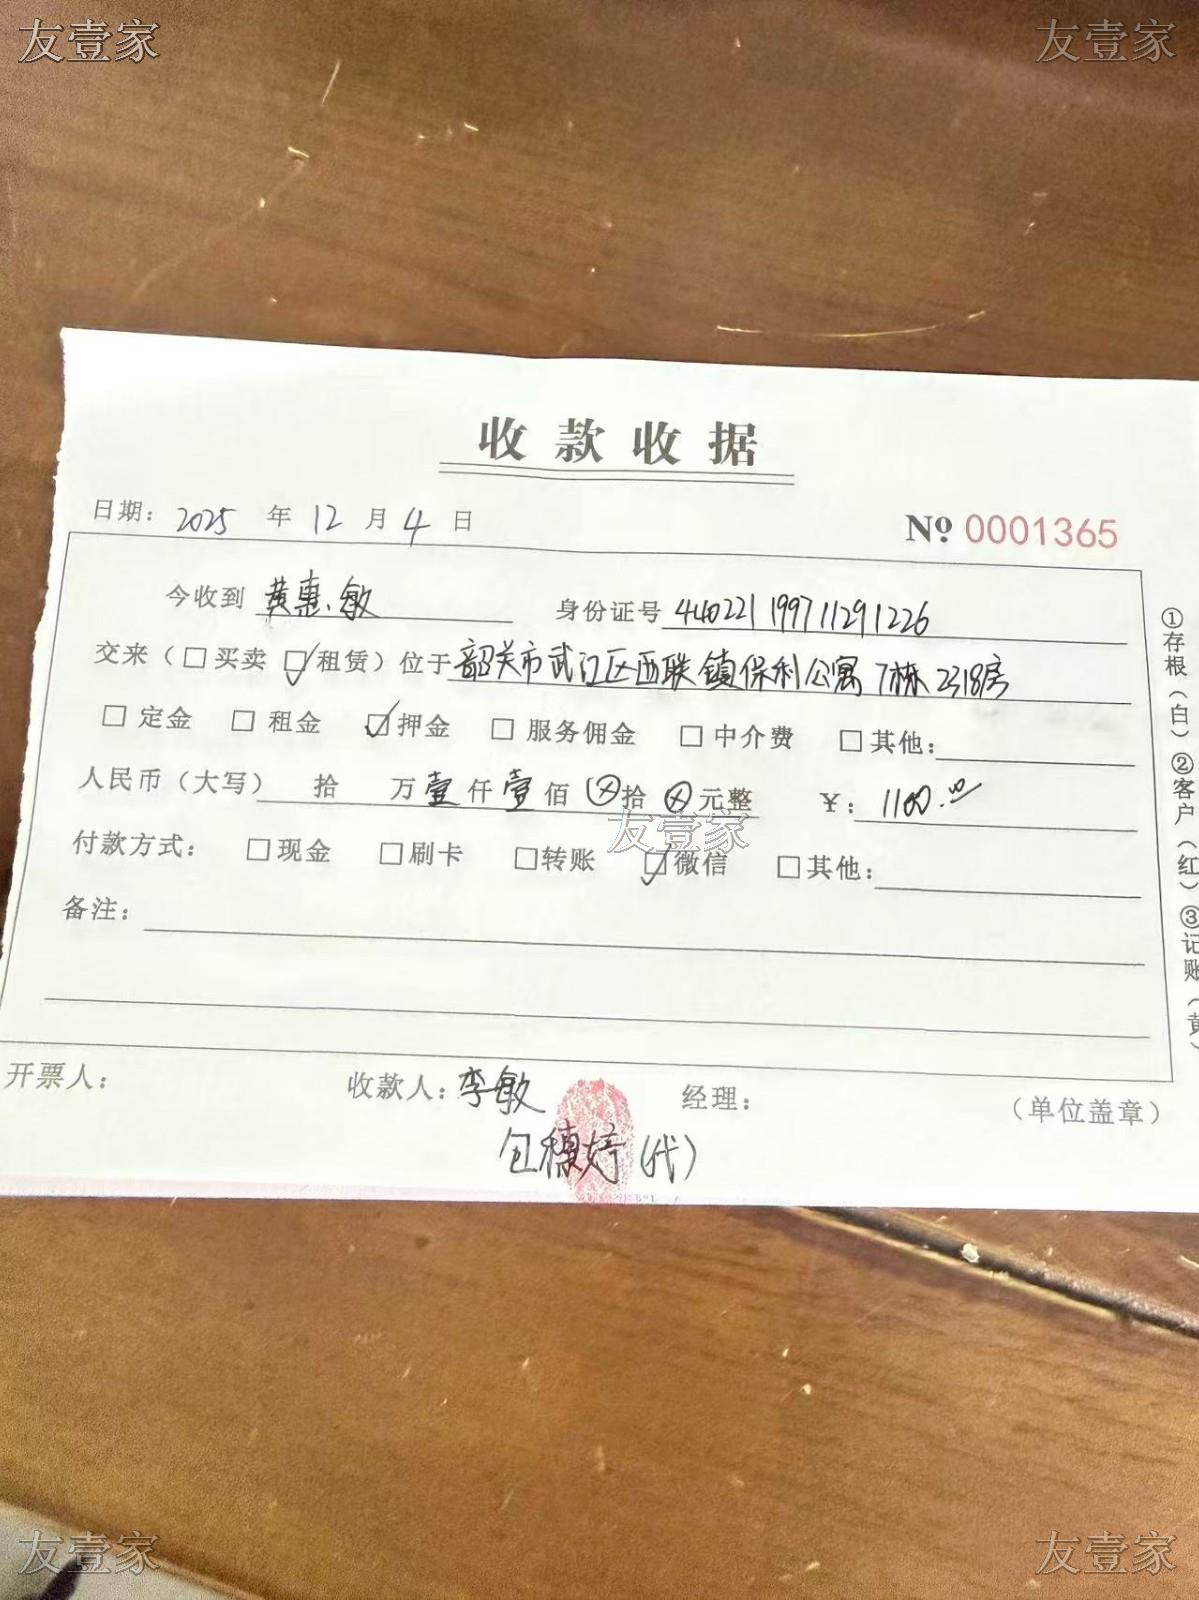 友壹家 友壹家
收款收据
日期: 2025 年 12 月 4 日 № 0001365
今收到 黄惠敏 身份证号 440221199711291226
交来（□买卖 ☑租赁）位于韶关市武江区西联镇保利公寓7栋2318房
□定金 □租金 ☑押金 □服务佣金 □中介费 □其他:
人民币（大写） 拾 万壹仟壹佰⊗拾⊗元整 ¥: 1100.00
友壹家
付款方式: □现金 □刷卡 □转账 ☑微信 □其他:
备注:
开票人: 收款人: 李敏 经理: （单位盖章）
包穗婷(代)
①存根（白）②客户（红）③记账（黄）
友壹家 友壹家